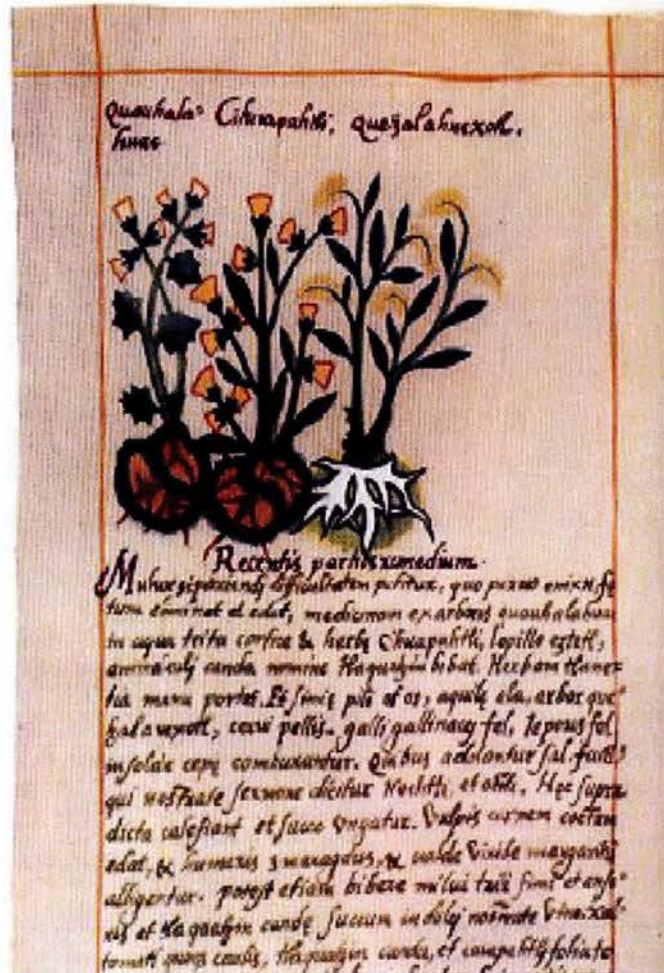 quauhala= Cihuapahtli, quetzalahuexotl,
huac
Recentis partus remedium.
Mulier si pariendi difficultatem patitur, quo
tum eminat et edat, medicinam ex arboris quauhalahuac
in aqua trita cortice & herba Cihuapahtli, lapillo eztetl,
animaculj cauda nomine tlaquatzin bibat. Herbam tlanex
tia manu portet. Et simię pili et os, aquilę ala, arbor que
tzalavexotl, cerui pellis, galli gallinacej fel, leporis fel
in solaꝛ cepę comburuntur. Quibus adduntur sal, fructꝯ
qui nostrate sermone dicitur Nochtli, et octli. Hęc supra
dicta calefiant et succo vngatur. Vulpis carnem coctam
edat, & humeris smaragdus, & viride margaritū
alligentur. potest etiam bibere milui fimi et
ris et tlaquatzin caudę succum in dulcj nostrate vino. Xal
tomatl caulis, tlaquatzin cauda, et folia to